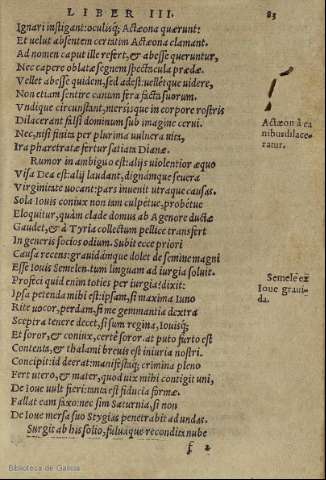 LIBER III. 83
Ignari instigant: oculisq; Actæona quærunt:
Et velut absentem certatim Actæona clamant.
Ad nomen caput ille refert, & abesse queruntur,
Nec capere oblatæ segnem spectacula prædæ.
Vellet abesse quidem, sed adest: velletque videre,
Non etiam sentire canum fera facta suorum.
Vndique circunstant, mersisque in corpore rostris
Dilacerant falsi dominum sub imagine cerui.
Nec, nisi finita per plurima vulnera vita,
Ira pharetratæ fertur satiata Dianæ.
Actæon à ca
nibus dilace-
ratur.
Rumor in ambiguo est: alijs violentior æquo
Visa Dea est: alij laudant, dignámque seuera
Virginitate vocant: pars inuenit vtraque causas.
Sola Iouis coniux non tam culpetue, probetue
Eloquitur, quàm clade domus ab Agenore ductæ
Gaudet, & à Tyria collectum pellice transfert
In generis socios odium. Subit ecce priori
Causa recens: grauidámque dolet de semine magni
Esse Iouis Semelen. tum linguam ad iurgia soluit.
Profeci quid enim toties per iurgia? dixit:
Ipsa petenda mihi est: ipsam, si maxima Iuno
Rite vocor, perdam, si me gemmantia dextra
Sceptra tenere decet, si sum regina, Iouisq;
Et soror, & coniux, certè soror. at puto furto est
Contenta, & thalami breuis est iniuria nostri.
Concipit: id deerat: manifestaq; crimina pleno
Fert vtero, & mater, quod vix mihi contigit vni,
De Ioue vult fieri: tanta est fiducia formæ.
Fallat eam faxo: nec sim Saturnia, si non
De Ioue mersa suo Stygias penetrabit ad undas.
Semele ex
Ioue graui-
da.
Surgit ab his solio, fuluaque recondita nube
f 2
Biblioteca de Galicia